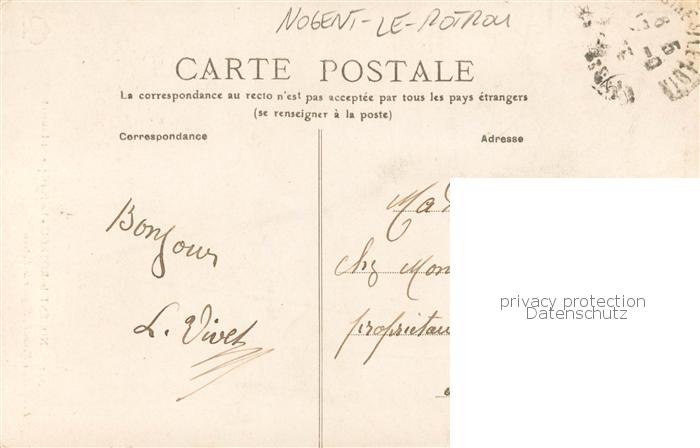 NOGENT-LE-ROTROU
CARTE POSTALE
La correspondance au recto n'est pas acceptée par tous les pays étrangers
(se renseigner à la poste)
Correspondance
Adresse
Bonjour
L. Vivet
Mad
chz Mon
propriétai
privacy protection
Datenschutz